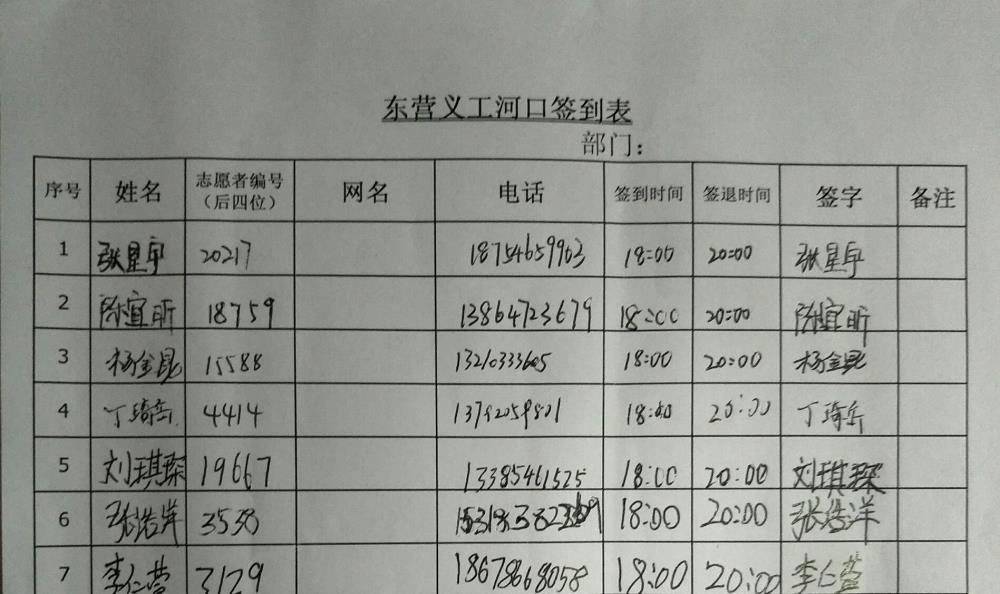 东营义工河口签到表
部门：
序号 姓名 志愿者编号（后四位） 网名 电话 签到时间 签退时间 签字 备注
1 张星宇 20217 18754659963 18:00 20:00 张星宇
2 陈宜昕 18759 13864723679 18:00 20:00 陈宜昕
3 杨金昆 15588 13210333605 18:00 20:00 杨金昆
4 丁琦岳 4414 18:00 20:00 丁琦岳
5 刘琪琛 19667 13385461525 18:00 20:00 刘琪琛
6 张浩洋 3538 18:00 20:00 张浩洋
7 李仁营 3129 18678668058 18:00 20:00 李仁营